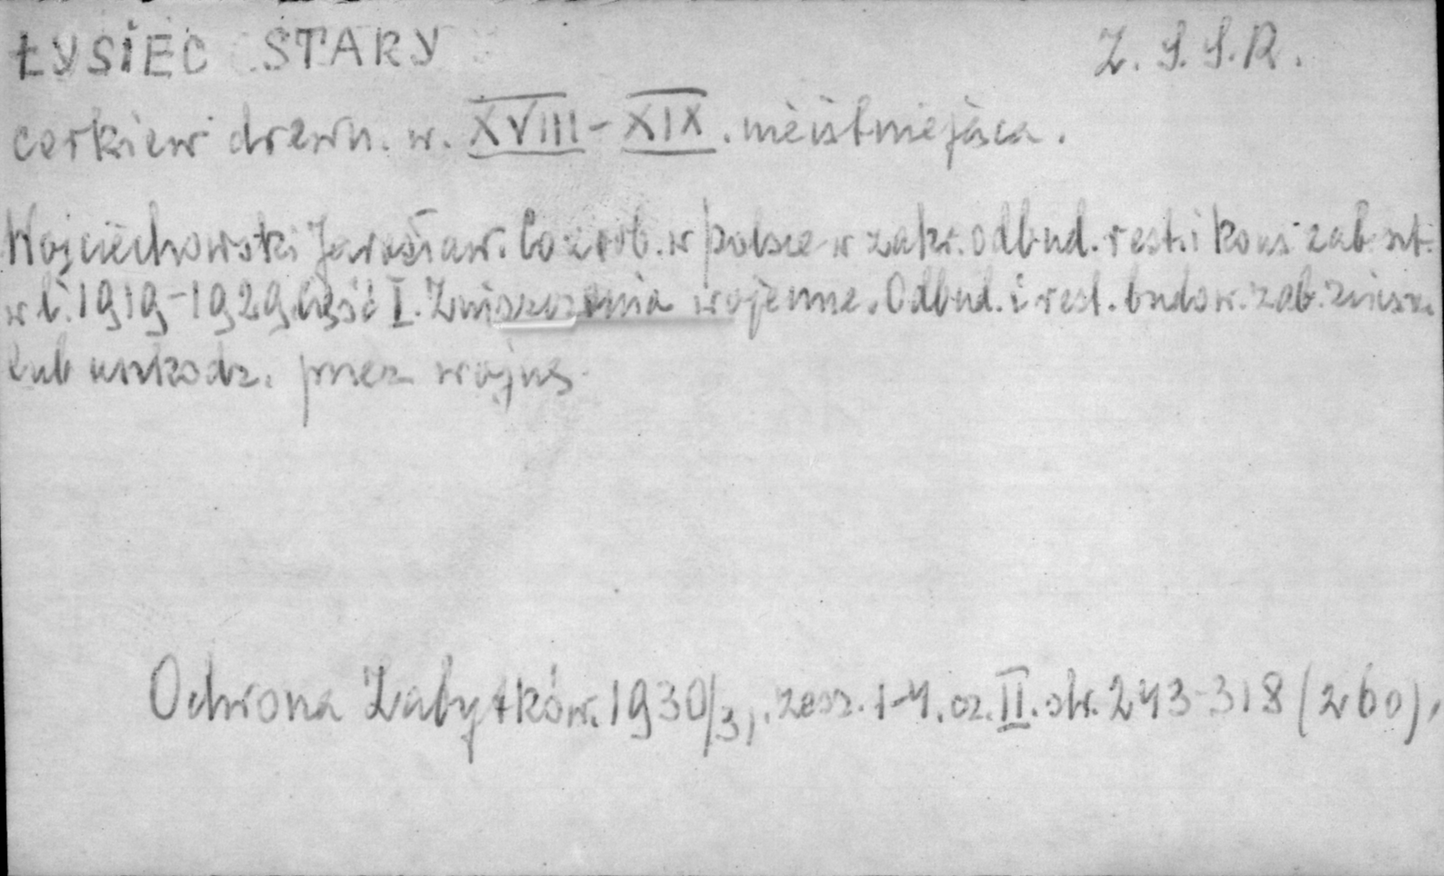 ŁYSIEC STARY Z.S.S.R.
cerkiew drewn. w. XVIII-XIX. nieistniejąca.
Wojciechowski Jarosław. Co zrob. w Polsce w zakr. odbud. rest. i kons. zab. szt.
w l. 1919-1929 część I. Zniszczenia wojenne. Odbud. i rest. budow. zab. zniszcz.
lub uszkodz. przez wojnę
Ochrona Zabytków. 1930/31, zesz. 1-4. cz. II. str. 243-318 (260),